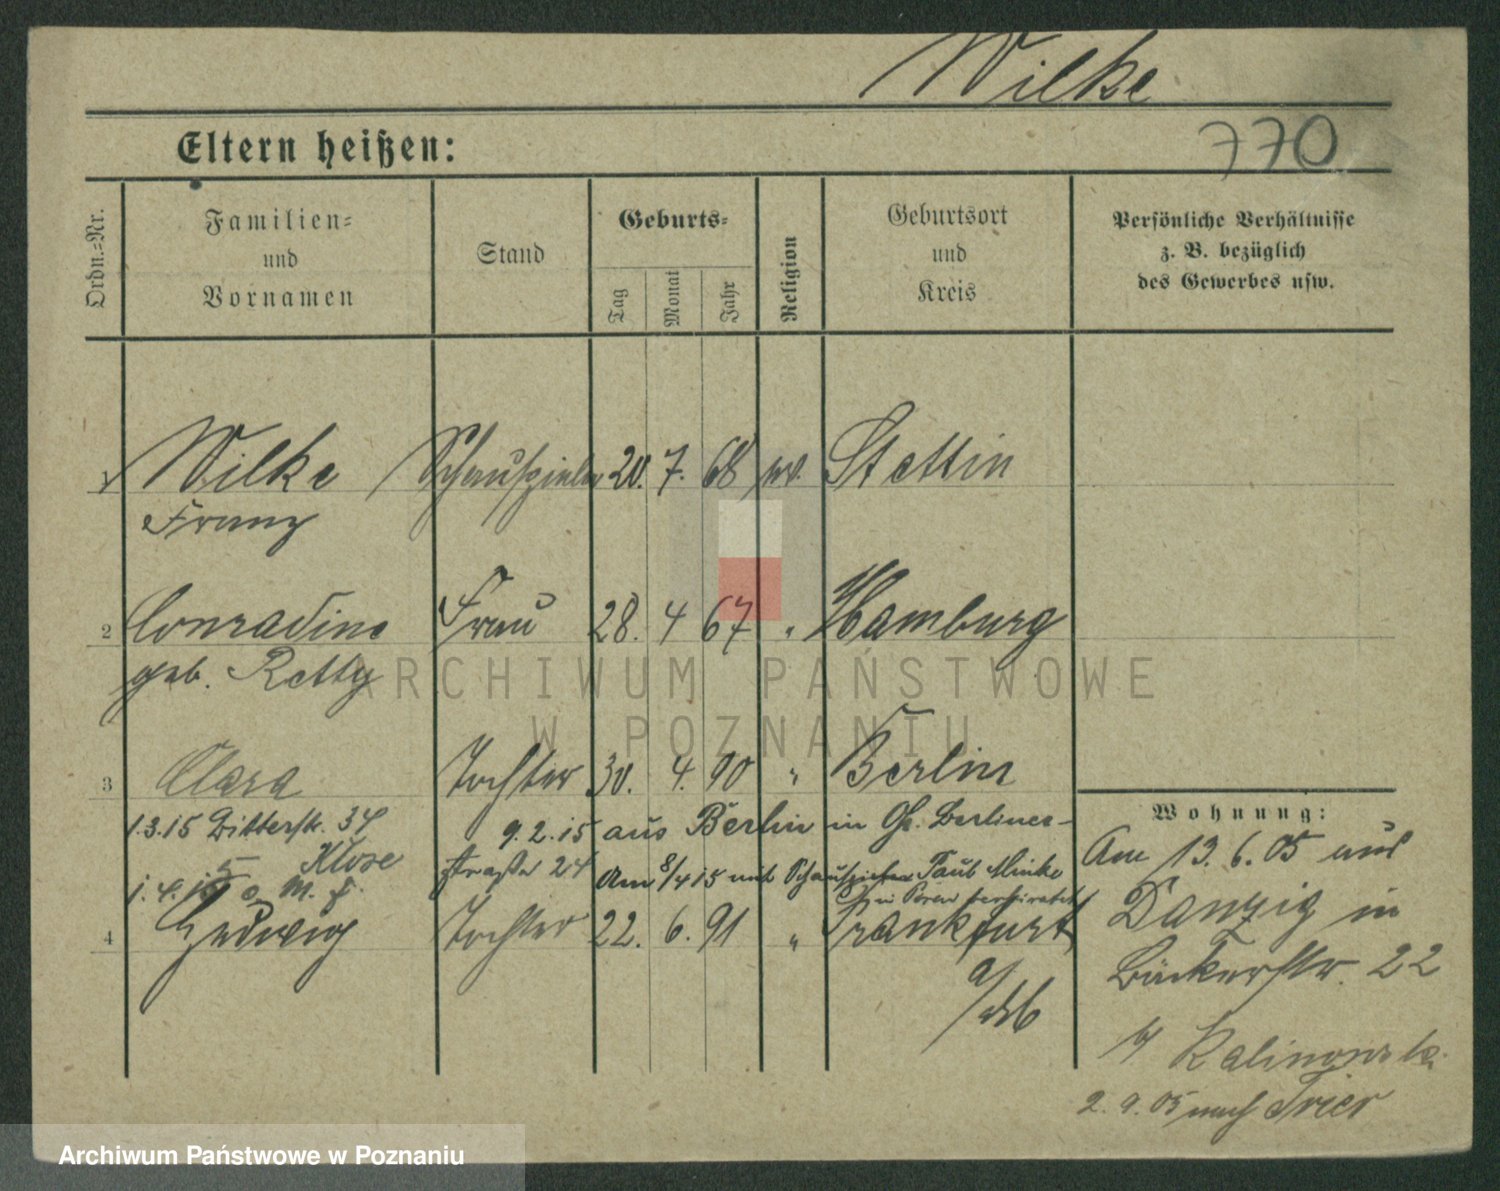 Wilke
Eltern heißen:
770
Ordn.=Nr.
Familien=
und
Vornamen
Stand
Geburts=
Tag
Monat
Jahr
Religion
Geburtsort
und
Kreis
Persönliche Verhältnisse
z. B. bezüglich
des Gewerbes usw.
1 Wilke Schauspieler 20. 7. 68 Stettin
Franz
2 Conradine Frau 28. 4 67 " Hamburg
geb. Retty
ARCHIWUM PAŃSTWOWE
W POZNANIU
3 Clara Tochter 30. 4. 90 " Berlin
1.3.15 Ritterstr. 34 9.2.15 aus Berlin in Gr. Berliner-
Klose straße 24 Am 8/4 15 mit Schauspieler Paul Minke
in Posen verheiratet
4 Hedwig Tochter 22. 6. 91 " Frankfurt
a/
Wohnung:
Am 13. 6. 05 aus
Danzig in
Bäckerstr. 22
b/ Kalinowski
2. 9. 05 nach Trier
Archiwum Państwowe w Poznaniu